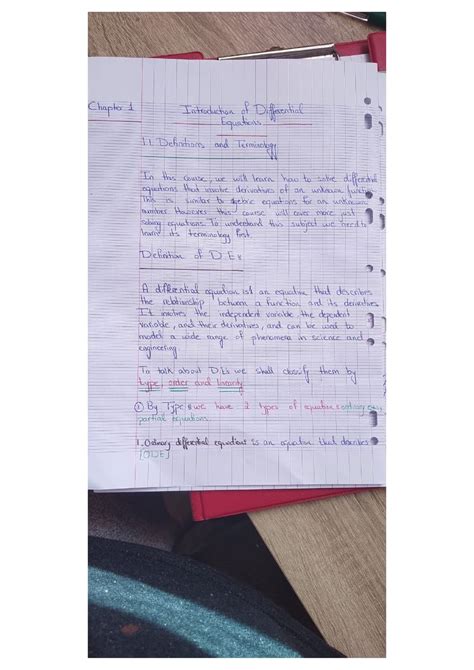 Chapter 1
Introduction of Differential
Equations
1.1. Definitions and Terminology
In this course, we will learn how to solve differential
equations that involve derivatives of an unknown function
This is similar to algebric equations for an unknown
number. However this course will cover more just
solving equations. To understand this subject we need to
learn its terminology first.
Definition of D.E:
A differential equation is an equation that describes
the relationship between a function and its derivatives
It involves the independent variable, the dependent
variable, and their derivatives, and can be used to
model a wide range of phenomena in science and
engineering.
To talk about D.Es we shall classify them by
type, order and linearity
① By Type: we have 2 types of equations ordinary
partial equations.
1. Ordinary differential equations is an equation that describes
[ODE]